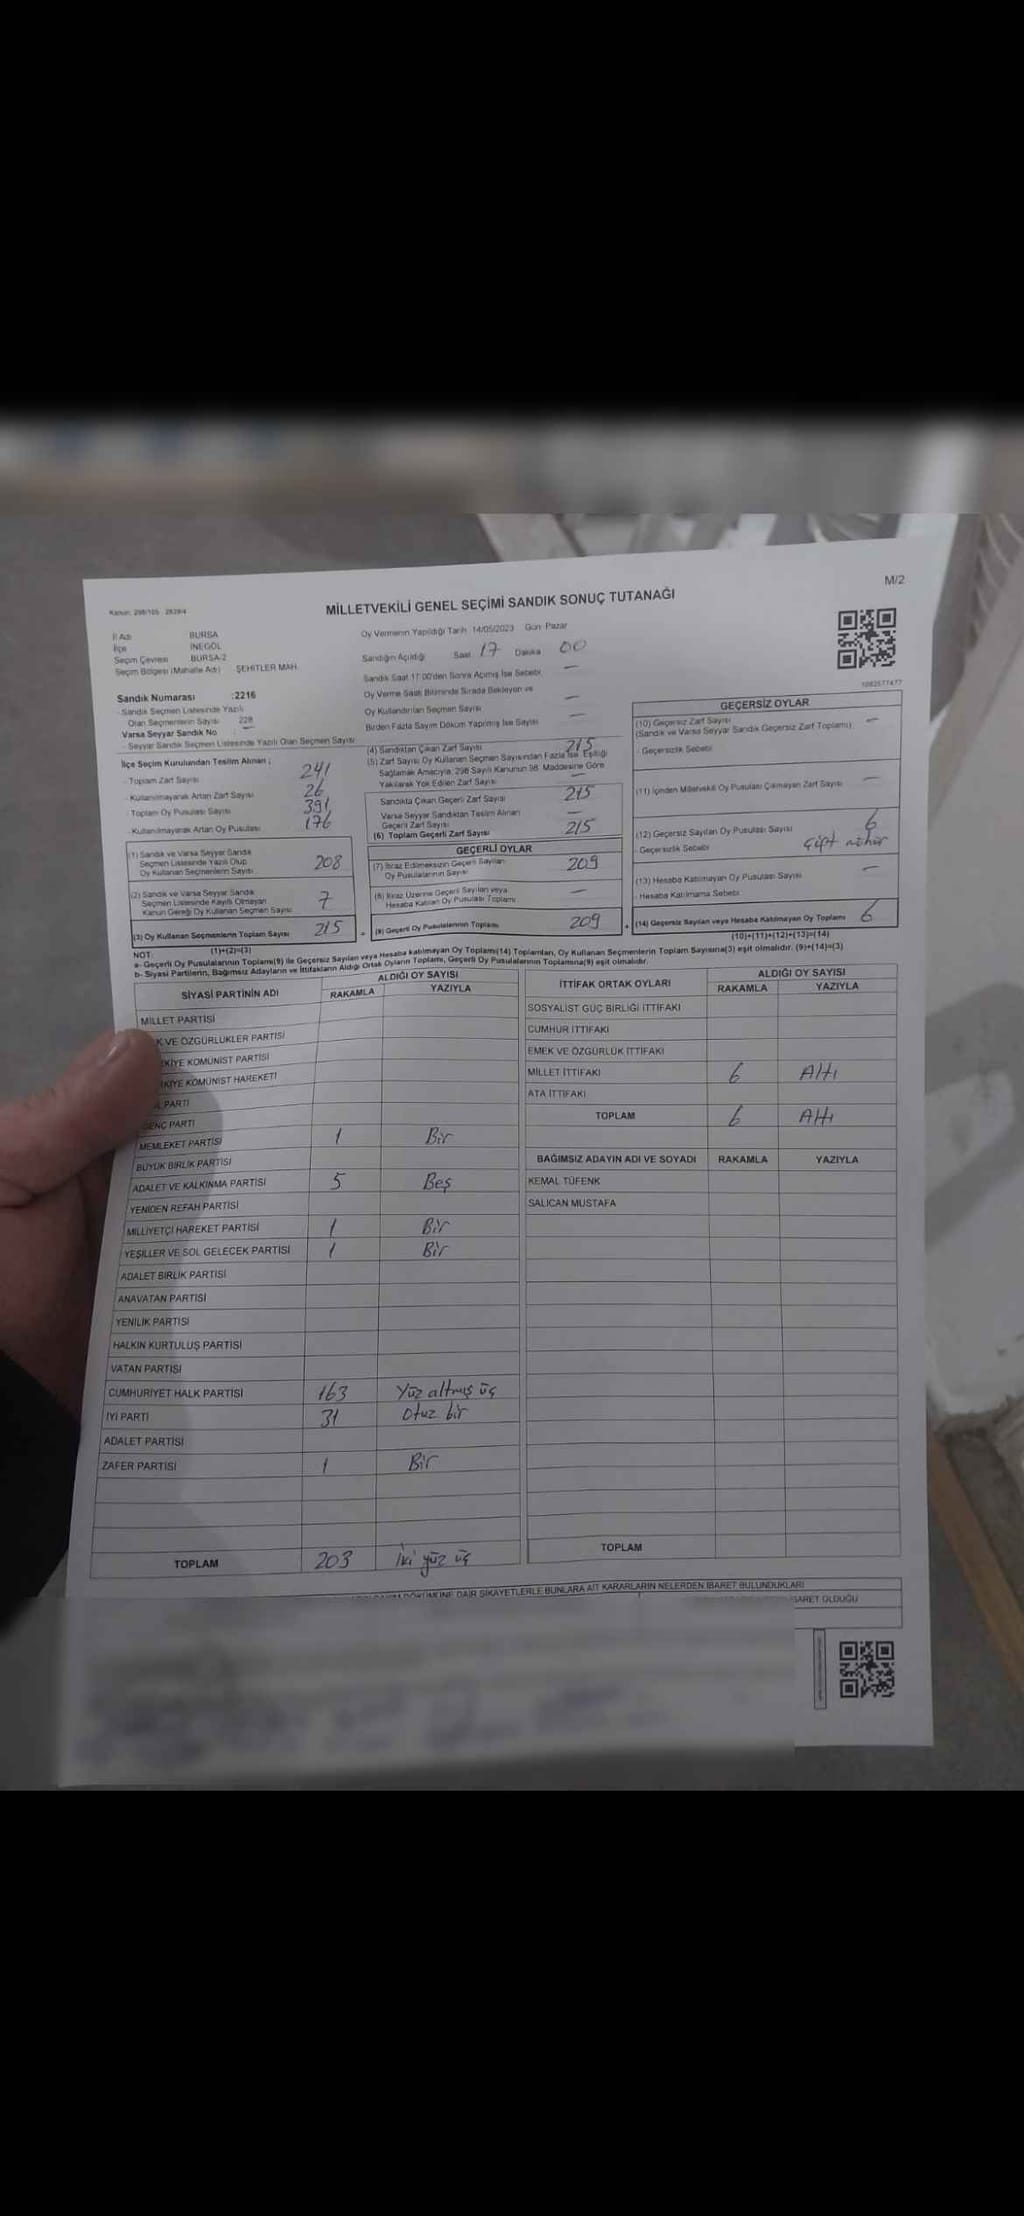 M/2
Kanun: 298/105 2839/4
MİLLETVEKİLİ GENEL SEÇİMİ SANDIK SONUÇ TUTANAĞI
İl Adı BURSA
İlçe İNEGÖL
Seçim Çevresi BURSA-2
Seçim Bölgesi (Mahalle Adı) ŞEHİTLER MAH.
Sandık Numarası :2216
- Sandık Seçmen Listesinde Yazılı
Olan Seçmenlerin Sayısı 228
Varsa Seyyar Sandık No : —
- Seyyar Sandık Seçmen Listesinde Yazılı Olan Seçmen Sayısı
Oy Vermenin Yapıldığı Tarih 14/05/2023 Gün Pazar
Sandığın Açıldığı Saat 17 Dakika 00
Sandık Saat 17.00'den Sonra Açılmış İse Sebebi —
Oy Verme Saati Bitiminde Sırada Bekleyen ve
Oy Kullandırılan Seçmen Sayısı —
Birden Fazla Sayım Döküm Yapılmış İse Sayısı —
1082577477
İlçe Seçim Kurulundan Teslim Alınan ;
- Toplam Zarf Sayısı 241
- Kullanılmayarak Artan Zarf Sayısı 26
- Toplam Oy Pusulası Sayısı 391
- Kullanılmayarak Artan Oy Pusulası 176
(1) Sandık ve Varsa Seyyar Sandık
Seçmen Listesinde Yazılı Olup
Oy Kullanan Seçmenlerin Sayısı 208
(2) Sandık ve Varsa Seyyar Sandık
Seçmen Listesinde Kayıtlı Olmayan
Kanun Gereği Oy Kullanan Seçmen Sayısı 7
(3) Oy Kullanan Seçmenlerin Toplam Sayısı 215
(1)+(2)=(3)
(4) Sandıktan Çıkan Zarf Sayısı 215
(5) Zarf Sayısı Oy Kullanan Seçmen Sayısından Fazla İse, Eşitliği
Sağlamak Amacıyla, 298 Sayılı Kanunun 98. Maddesine Göre
Yakılarak Yok Edilen Zarf Sayısı —
Sandıkta Çıkan Geçerli Zarf Sayısı 215
Varsa Seyyar Sandıktan Teslim Alınan
Geçerli Zarf Sayısı —
(6) Toplam Geçerli Zarf Sayısı 215
GEÇERLİ OYLAR
(7) İtiraz Edilmeksizin Geçerli Sayılan
Oy Pusulalarının Sayısı 209
(8) İtiraz Üzerine Geçerli Sayılan veya
Hesaba Katılan Oy Pusulası Toplamı —
= (9) Geçerli Oy Pusulalarının Toplamı 209
GEÇERSİZ OYLAR
(10) Geçersiz Zarf Sayısı —
(Sandık ve Varsa Seyyar Sandık Geçersiz Zarf Toplamı)
- Geçersizlik Sebebi
(11) İçinden Milletvekili Oy Pusulası Çıkmayan Zarf Sayısı —
(12) Geçersiz Sayılan Oy Pusulası Sayısı 6
- Geçersizlik Sebebi çift mühür
(13) Hesaba Katılmayan Oy Pusulası Sayısı —
- Hesaba Katılmama Sebebi
+ (14) Geçersiz Sayılan veya Hesaba Katılmayan Oy Toplamı 6
(10)+(11)+(12)+(13)=(14)
NOT:
a- Geçerli Oy Pusulalarının Toplamı(9) ile Geçersiz Sayılan veya Hesaba katılmayan Oy Toplamı(14) Toplamları, Oy Kullanan Seçmenlerin Toplam Sayısına(3) eşit olmalıdır. (9)+(14)=(3)
b- Siyasi Partilerin, Bağımsız Adayların ve İttifakların Aldığı Ortak Oyların Toplamı, Geçerli Oy Pusulalarının Toplamına(9) eşit olmalıdır.
SİYASİ PARTİNİN ADI ALDIĞI OY SAYISI
RAKAMLA YAZIYLA
MİLLET PARTİSİ
K VE ÖZGÜRLÜKLER PARTİSİ
RKİYE KOMÜNİST PARTİSİ
KİYE KOMÜNİST HAREKETİ
L PARTİ
GENÇ PARTİ
MEMLEKET PARTİSİ 1 Bir
BÜYÜK BİRLİK PARTİSİ
ADALET VE KALKINMA PARTİSİ 5 Beş
YENİDEN REFAH PARTİSİ
MİLLİYETÇİ HAREKET PARTİSİ 1 Bir
YEŞİLLER VE SOL GELECEK PARTİSİ 1 Bir
ADALET BİRLİK PARTİSİ
ANAVATAN PARTİSİ
YENİLİK PARTİSİ
HALKIN KURTULUŞ PARTİSİ
VATAN PARTİSİ
CUMHURİYET HALK PARTİSİ 163 Yüz altmış üç
İYİ PARTİ 31 Otuz bir
ADALET PARTİSİ
ZAFER PARTİSİ 1 Bir
TOPLAM 203 İki yüz üç
İTTİFAK ORTAK OYLARI ALDIĞI OY SAYISI
RAKAMLA YAZIYLA
SOSYALİST GÜÇ BİRLİĞİ İTTİFAKI
CUMHUR İTTİFAKI
EMEK VE ÖZGÜRLÜK İTTİFAKI
MİLLET İTTİFAKI 6 Altı
ATA İTTİFAKI
TOPLAM 6 Altı
BAĞIMSIZ ADAYIN ADI VE SOYADI RAKAMLA YAZIYLA
KEMAL TÜFENK
SALİCAN MUSTAFA
TOPLAM
DÖKÜMÜNE DAİR ŞİKAYETLERLE BUNLARA AİT KARARLARIN NELERDEN İBARET BULUNDUKLARI
İBARET OLDUĞU